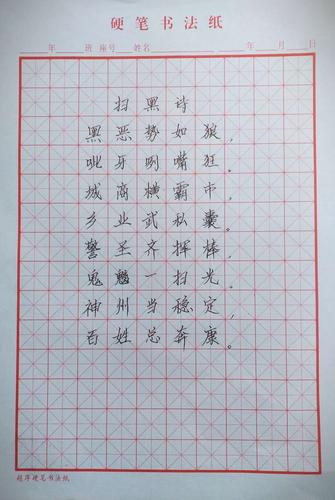 硬笔书法纸
年 班 座号 姓名 年 月 日
扫黑诗
黑恶势如狼，
呲牙咧嘴狂。
城商横霸市，
乡业武私囊。
警圣齐挥棒，
鬼魑一扫光。
神州当稳定，
百姓总奔康。
超序硬笔书法纸